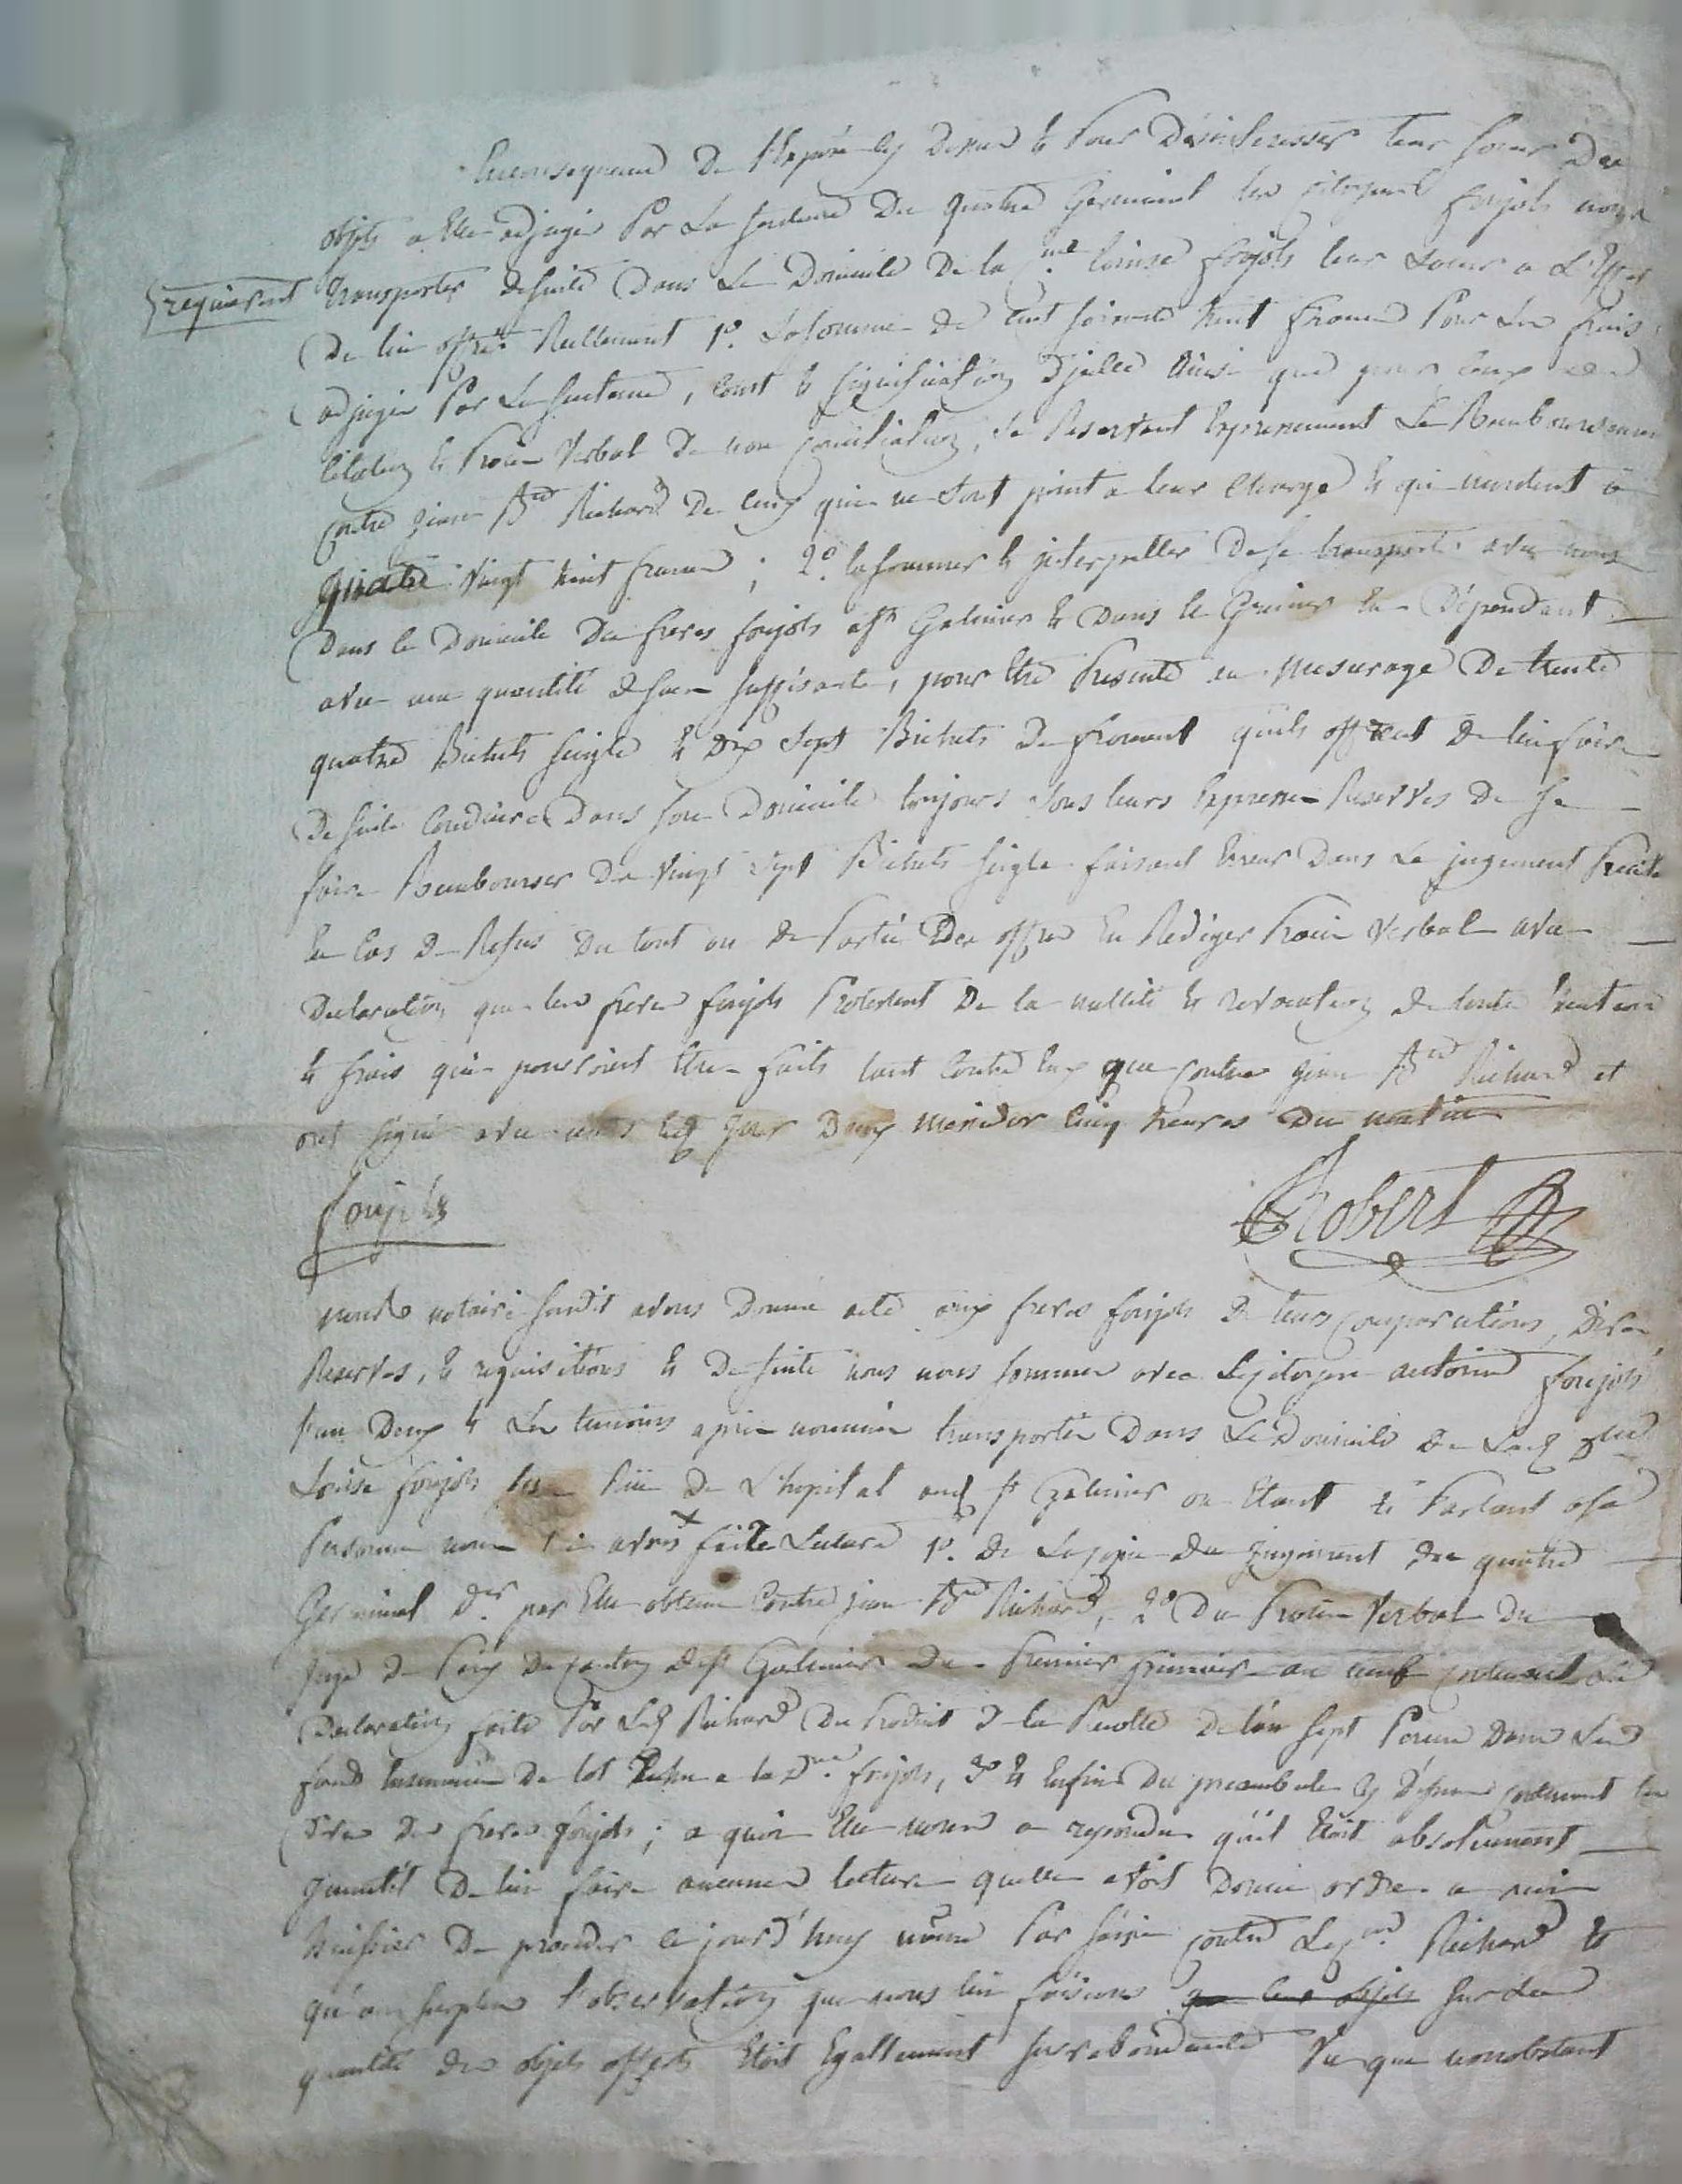 En consequence de l'exposé cy dessus & Pour Desinteresser leur soeur Des
objets a Elle adjugés Par La sentence Du quatre Germinal les citoyens foujols nous
requierent transporter de suite Dans Le Domicile De la C.me louise foujols leur soeur a L'Effet
De lui offrir Reellement 1º. La somme de Cent soixante huit francs Pour les frais
adjugés Par La sentence, Cout & signification d'jcelle Ainsi que pour ceux de
Citation & Procès Verbal De non Conciliation, se Reservant Expressement Le Remboursement
contre jean B.te Richard De ceux qui ne sont point a leur Charge & qui montent à
quatre vingt huit francs ; 2º. la sommer & jnterpeller De se transporter avec nous
Dans le Domicile Des freres foujols a St Galmier & Dans le Grenier En Dépendant
avec une quantité de sacs suffisante, pour Etre Presente au mesurage De trente
quatre Bichets seigle & Dix sept Bichets De froment qu'ils offrent de lui faire
De suite Conduire Dans son Domicile toujours sous leurs Expresses Reserves De se
faire Rembourser Des vingt sept Bichets seigle faisant Erreur Dans Le jugement Precité
En Cas de Refus Du tout ou de Partie Des offres En Rediger Procès Verbal avec
Declaration que les freres foujols Protestent De la nullité & revocation de toutes
& frais qui pourroient Etre faits tant Contre Eux que contre jean B.te Richard et
ont signé avec nous Led. jour Deux messidor cinq heures Du matin
foujols
Robert
nous notaire susdit avons Donné acte aux freres foujols De leurs Comparutions, Dires
Reserves, & requisitions & De suite nous nous sommes avec Le citoyen antoine foujols
l'un Deux & Les temoins après nommés transportés Dans Le Domicile De Lad.
Louise foujols Rüe De L'hopital aud. St Galmier ou Etant & Parlant a sa
Personne nous avons faite Lecture 1º. De La copie du jugement du quatre
Germinal d.er par Elle obtenu Contre jean B.te Richard, 2º Du Procès Verbal Du
juge De Paix Du canton de St Galmier Du Premier frimaire an neuf contenant La
Declaration faite Par Led. Richard Du Produit de la Recolte De l'an sept Percue Dans Les
fonds Ensemencés De lot Echu a la D.me foujols, 3º & Enfin Du preambule cy Dessus contenant les
Dires Des freres foujols ; a quoi Elle nous a repondu qu'il Etoit absolument
jnutil De lui faire aucune lecture qu'elle avoit Donné ordre a son
huissier De proceder ce jourd'huy même Par saisie contre Led. Richard &
qu'au surplus l'observation que nous lui faisions sur la
quantité des objets offerts Etoit Egallement surabondante Vu que nonobstant